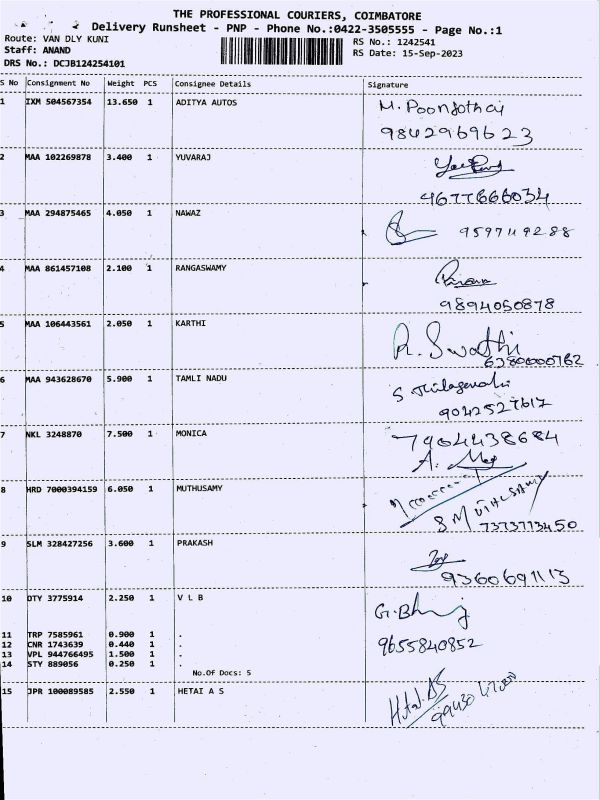 THE PROFESSIONAL COURIERS, COIMBATORE
Delivery Runsheet - PNP - Phone No.:0422-3505555 - Page No.:1
Route: VAN DLY KUNI
RS No.: 1242541
Staff: ANAND
RS Date: 15-Sep-2023
DRS No.: DCJB124254101
S No Consignment No Weight PCS Consignee Details Signature
1 IXM 504567354 13.650 1 ADITYA AUTOS M. Poongothai
9842969623
2 MAA 102269878 3.400 1 YUVARAJ
4677666034
3 MAA 294875465 4.050 1 NAWAZ 9597149288
4 MAA 861457108 2.100 1 RANGASWAMY
9894050878
5 MAA 106443561 2.050 1 KARTHI R. Swathi
6380000762
6 MAA 943628670 5.900 1 TAMLI NADU S Thilagavathi
9042527617
7 NKL 3248870 7.500 1 MONICA 7904438684
A.
8 HRD 7000394159 6.050 1 MUTHUSAMY
S MUTHUSAMY
7373773450
9 SLM 328427256 3.600 1 PRAKASH
9360691113
10 DTY 3775914 2.250 1 V L B G. Bhuvi
9655840852
11 TRP 7585961 0.900 1 .
12 CNR 1743639 0.440 1 .
13 VPL 944766495 1.500 1 .
14 STY 889056 0.250 1 .
No.Of Docs: 5
15 JPR 100089585 2.550 1 HETAI A S Hetai.AS